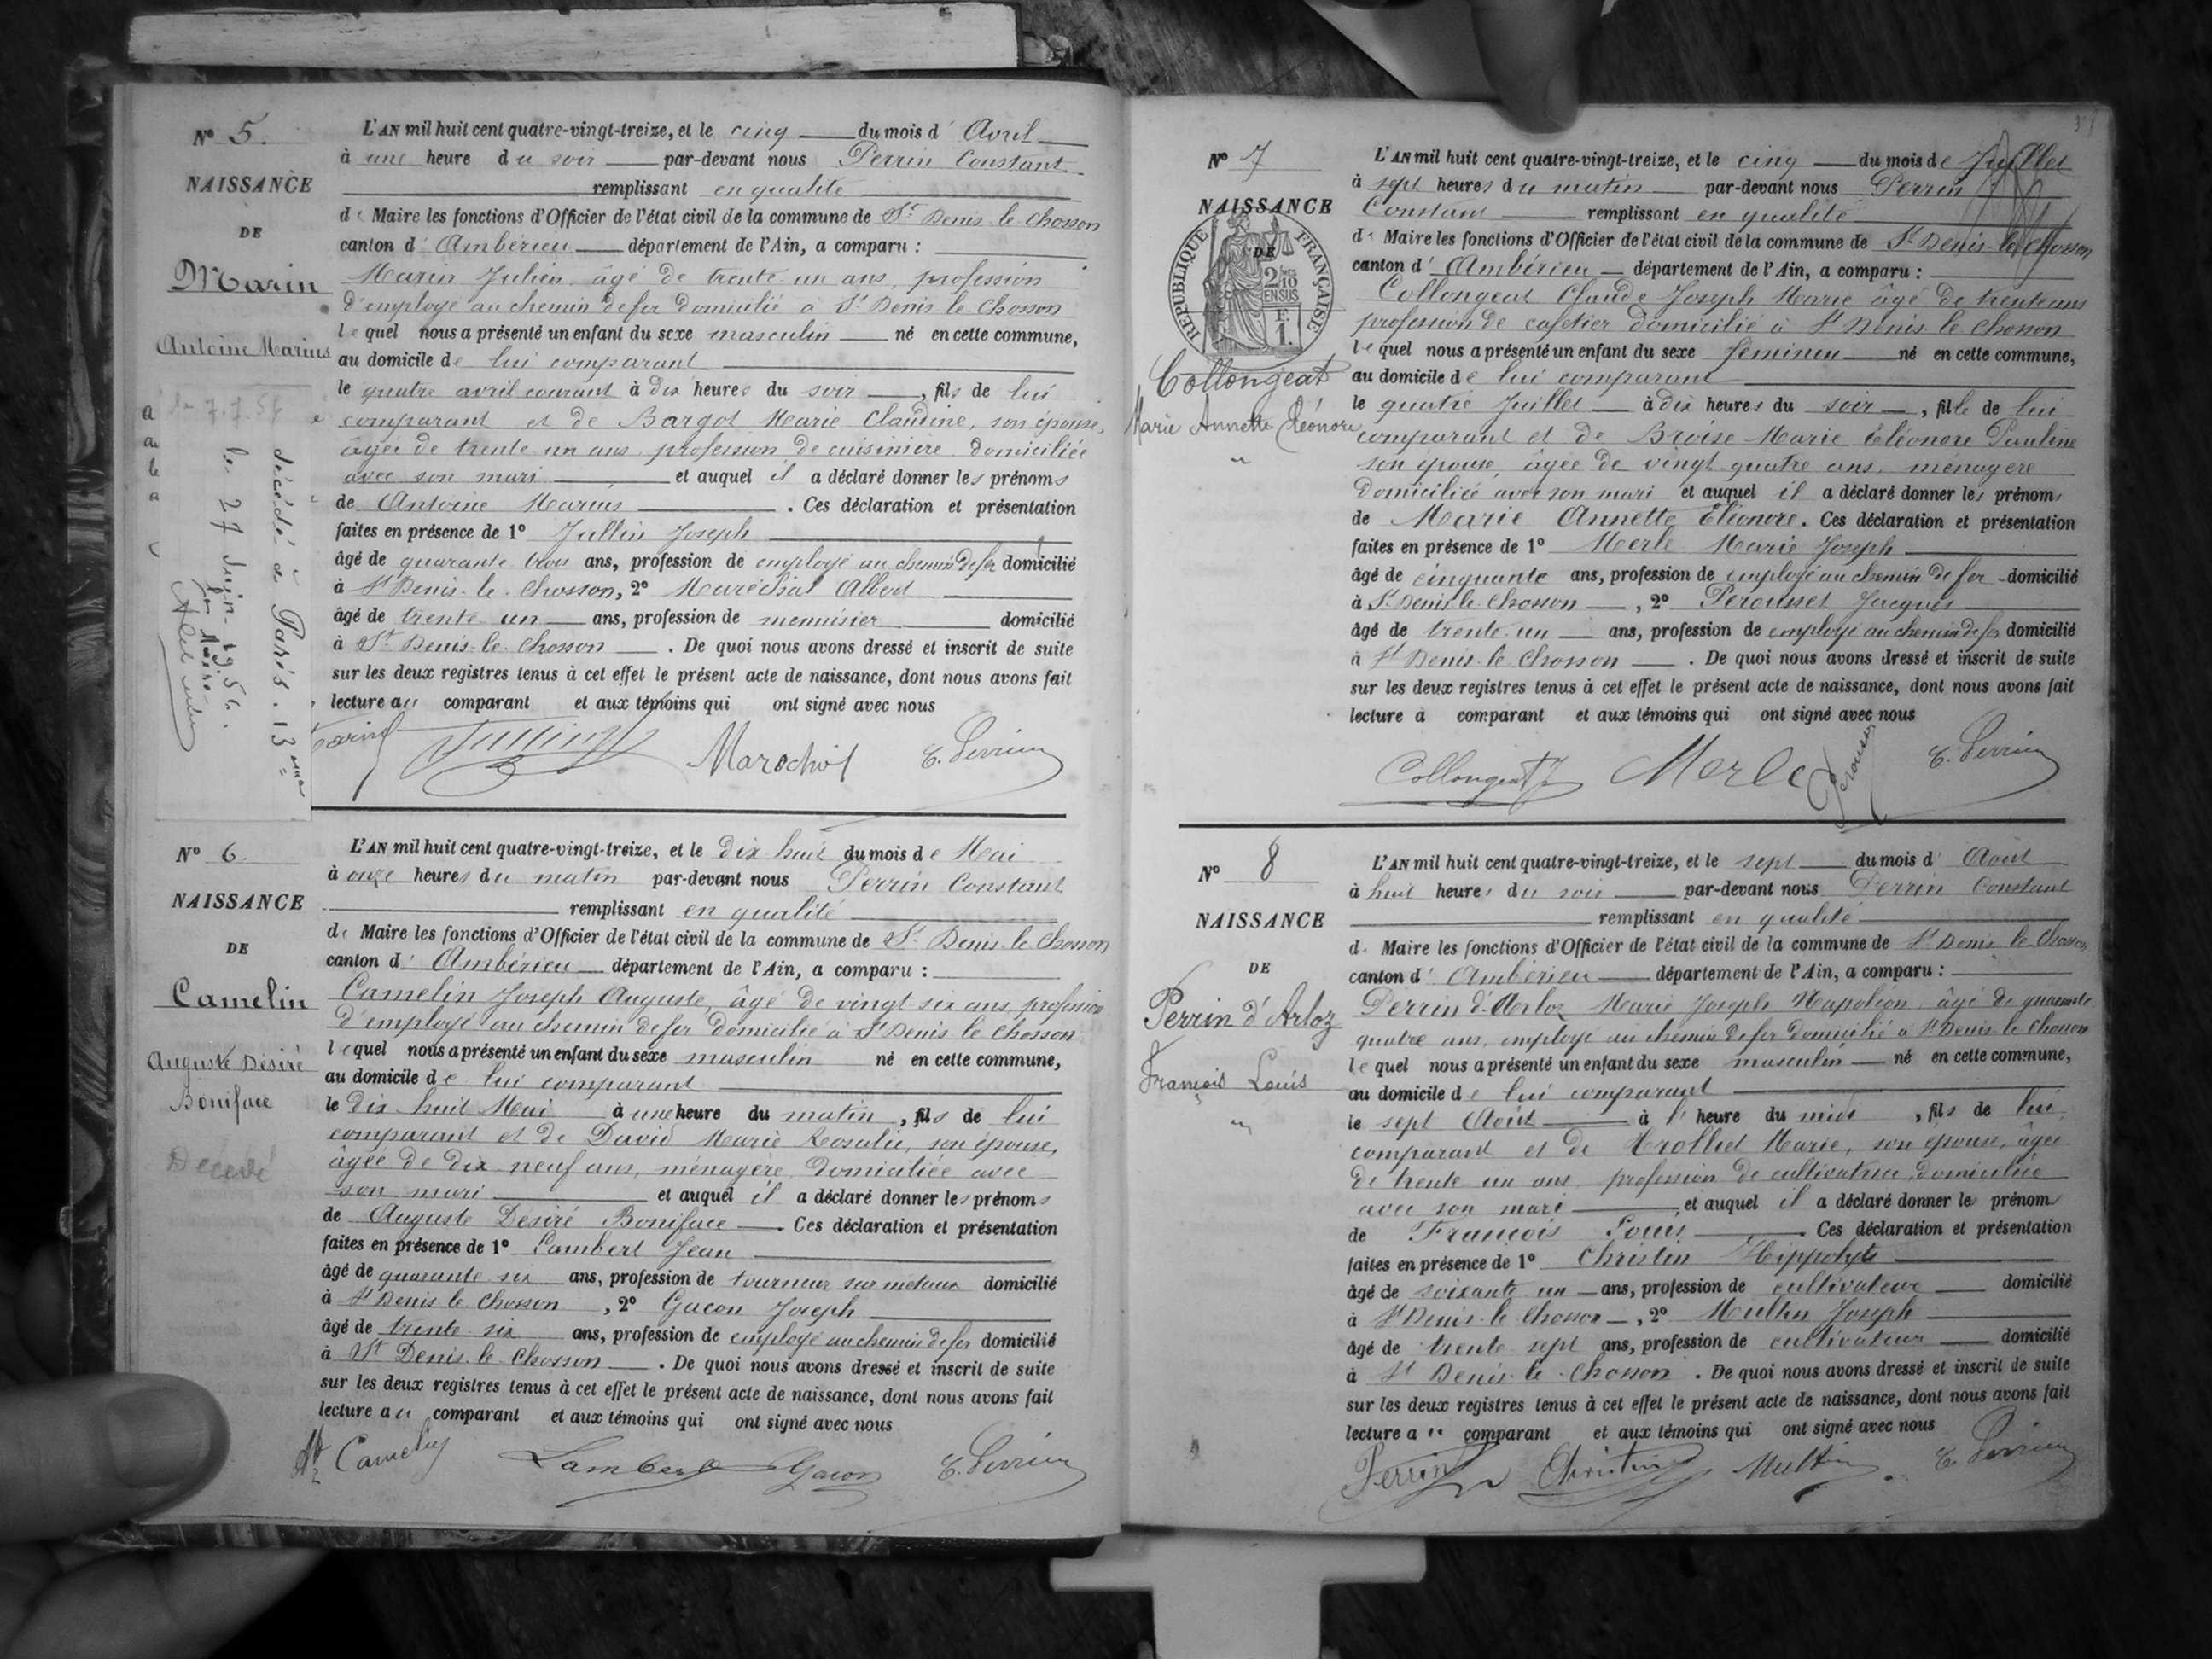 N° 5.
NAISSANCE
DE
Marin
Antoine Marius
décédé à Paris. 13
le 27 Juin 1956.
L'AN mil huit cent quatre-vingt-treize, et le cinq du mois d' Avril
à une heure du soir par-devant nous Perrin Constant
remplissant en qualité
de Maire les fonctions d'Officier de l'état civil de la commune de St Denis-le-Chosson
canton d' Ambérieu département de l'Ain, a comparu :
Marin Julien, âgé de trente un ans, profession
d'employé au chemin de fer domicilié à St Denis le Chosson
lequel nous a présenté un enfant du sexe masculin né en cette commune,
au domicile de lui comparant
le quatre avril courant à dix heures du soir, fils de lui
comparant et de Bargot Marie Claudine, son épouse,
âgée de trente un ans profession de cuisinière domiciliée
avec son mari et auquel il a déclaré donner les prénoms
de Antoine Marius. Ces déclaration et présentation
faites en présence de 1° Jullin Joseph
âgé de quarante trois ans, profession de employé au chemin de fer domicilié
à St Denis-le-Chosson, 2° Maréchal Albert
âgé de trente un ans, profession de menuisier domicilié
à St Denis-le-Chosson. De quoi nous avons dressé et inscrit de suite
sur les deux registres tenus à cet effet le présent acte de naissance, dont nous avons fait
lecture au comparant et aux témoins qui ont signé avec nous
Marechal C. Perrin
N° 6.
NAISSANCE
DE
Camelin
Auguste Désiré
Boniface
Décédé
L'AN mil huit cent quatre-vingt-treize, et le dix huit du mois de Mai
à onze heures du matin par-devant nous Perrin Constant
remplissant en qualité
de Maire les fonctions d'Officier de l'état civil de la commune de St Denis-le-Chosson
canton d' Ambérieu département de l'Ain, a comparu :
Camelin Joseph Auguste, âgé de vingt six ans, profession
d'employé au chemin de fer domicilié à St Denis le Chosson
lequel nous a présenté un enfant du sexe masculin né en cette commune,
au domicile de lui comparant
le dix huit Mai à une heure du matin, fils de lui
comparant et de David Marie Rosalie, son épouse,
âgée de dix neuf ans, ménagère domiciliée avec
son mari et auquel il a déclaré donner les prénoms
de Auguste Désiré Boniface. Ces déclaration et présentation
faites en présence de 1° Lambert Jean
âgé de quarante six ans, profession de tourneur sur métaux domicilié
à St Denis le Chosson, 2° Gacon Joseph
âgé de trente six ans, profession de employé au chemin de fer domicilié
à St Denis-le-Chosson. De quoi nous avons dressé et inscrit de suite
sur les deux registres tenus à cet effet le présent acte de naissance, dont nous avons fait
lecture au comparant et aux témoins qui ont signé avec nous
Camelin Lambert Gacon C. Perrin
N° 7
NAISSANCE
DE
RÉPUBLIQUE FRANÇAISE
2/10
EN SUS
F.
1.
Collongeat
Marie Annette Eléonore
L'AN mil huit cent quatre-vingt-treize, et le cinq du mois de Juillet
à sept heures du matin par-devant nous Perrin
Constant remplissant en qualité
de Maire les fonctions d'Officier de l'état civil de la commune de St Denis-le-Chosson
canton d' Ambérieu département de l'Ain, a comparu :
Collongeat Claude Joseph Marie âgé de trente ans
profession de cafetier domicilié à St Denis le Chosson
lequel nous a présenté un enfant du sexe féminin né en cette commune,
au domicile de lui comparant
le quatre Juillet à dix heures du soir, fille de lui
comparant et de Broise Marie Eléonore Pauline
son épouse, âgée de vingt quatre ans, ménagère
domiciliée avec son mari et auquel il a déclaré donner les prénoms
de Marie Annette Eléonore. Ces déclaration et présentation
faites en présence de 1° Merle Marie Joseph
âgé de cinquante ans, profession de employé au chemin de fer domicilié
à St Denis-le-Chosson, 2° Perousset Jacques
âgé de trente un ans, profession de employé au chemin de fer domicilié
à St Denis-le-Chosson. De quoi nous avons dressé et inscrit de suite
sur les deux registres tenus à cet effet le présent acte de naissance, dont nous avons fait
lecture a comparant et aux témoins qui ont signé avec nous
Collongeat Merle C. Perrin
N° 8
NAISSANCE
DE
Perrin d'Arloz
François Louis
L'AN mil huit cent quatre-vingt-treize, et le sept du mois d' Août
à huit heures du soir par-devant nous Perrin Constant
remplissant en qualité
de Maire les fonctions d'Officier de l'état civil de la commune de St Denis le Chosson
canton d' Ambérieu département de l'Ain, a comparu :
Perrin d'Arloz Marie Joseph Napoléon âgé de quarante
quatre ans, employé au chemin de fer domicilié à St Denis-le-Chosson
lequel nous a présenté un enfant du sexe masculin né en cette commune,
au domicile de lui comparant
le sept Août à l' heure du midi, fils de lui
comparant et de Trolliet Marie, son épouse, âgée
de trente un ans profession de cultivatrice, domiciliée
avec son mari et auquel il a déclaré donner le prénom
de François Louis Ces déclaration et présentation
faites en présence de 1° Christin Hippolyte
âgé de soixante un ans, profession de cultivateur domicilié
à St Denis-le-Chosson, 2° Multin Joseph
âgé de trente sept ans, profession de cultivateur domicilié
à St Denis-le-Chosson. De quoi nous avons dressé et inscrit de suite
sur les deux registres tenus à cet effet le présent acte de naissance, dont nous avons fait
lecture au comparant et aux témoins qui ont signé avec nous
Perrin Christin Multin C. Perrin